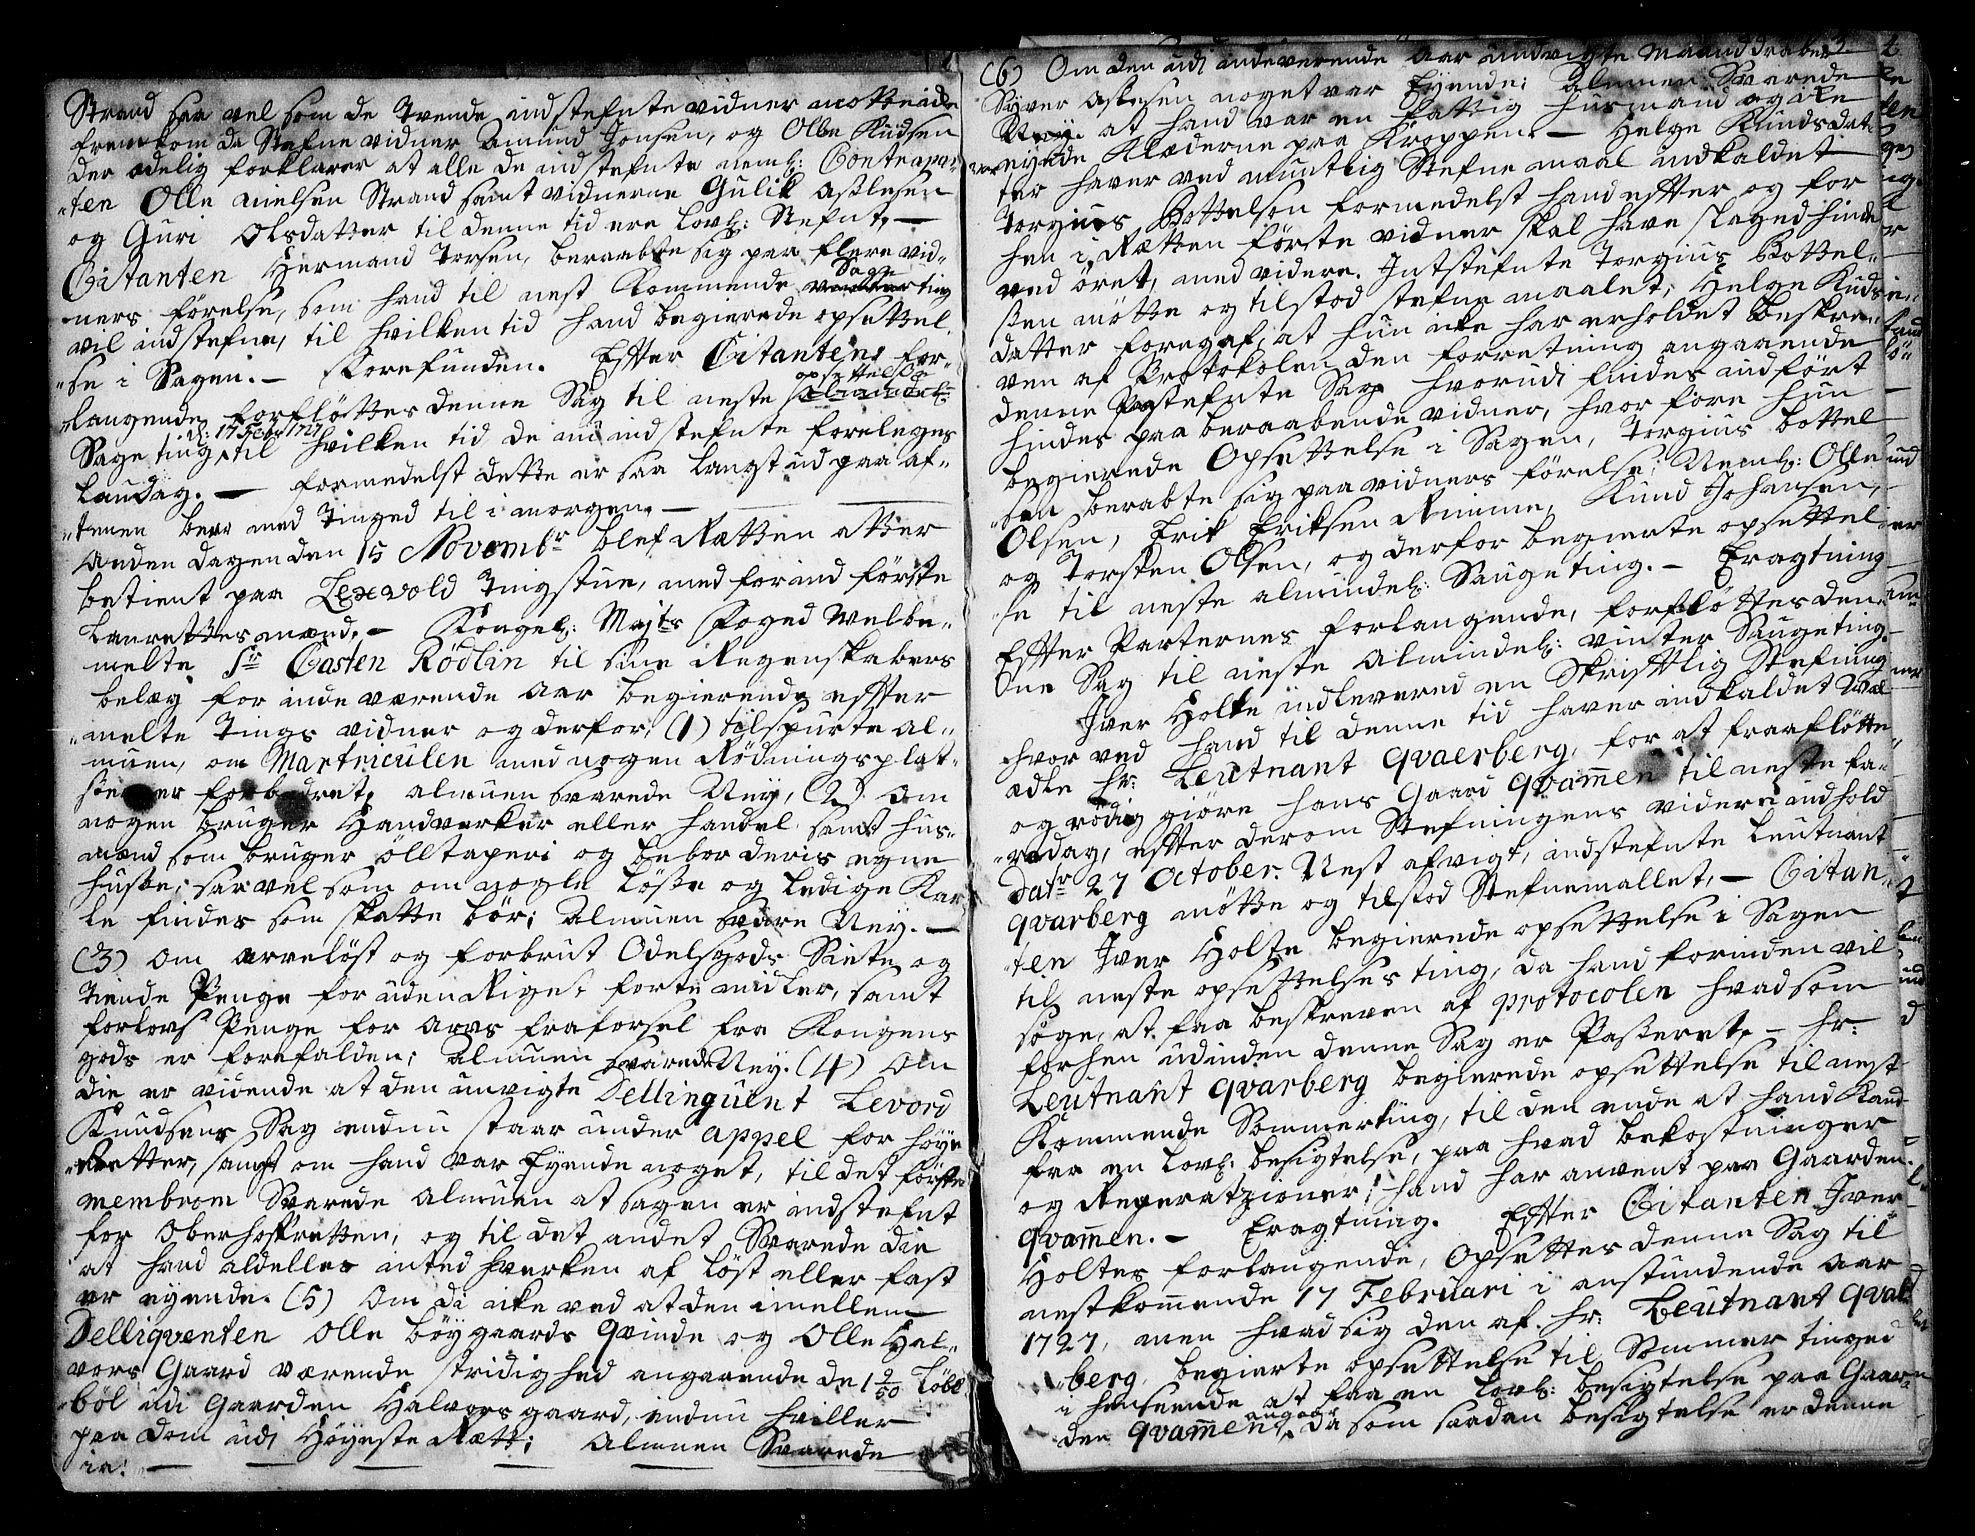 Strand saa vel som de Tvende indstefnte vidner motte iche
fremkom da Stefnevidner Amund Jonsen, og Olle Kudsen
der ædelig forklarer at alle de indstefnte neml: Contrapar-
"ten Olle nielsen Strand samt vidnerne Gulik aslesen
og Guri Olsdatter til denne tid ere lovl: Stefnt. —
Citanten Hermand Torsen, beraabte sig paa flere vid-
"ners förelse, som hand til nest Kommende Sage ting
vil indstefne, til hvilken tid hand begierede opsettel-
"se i Sagen. — Forefunden. Effter Citantens for-
"langende forflöttes denne Sag til neste opsettelsse
Sageting, d: 17 Febr 1727 til hvilken tid de nu indstefnte foreleges
laudag. — formedelst dette er saa langst ud paa af-
"tenen bero med Tinged til i morgen. —
Anden dagen den 15 Novembr blef Retten atter
betient paa Lexvold Tingstue, med forind förste
laurettesmænd. — Kongel: Majts Foged Welbe-
melte Sr Casten Rödlin til sine Regenskabers
belæg for inde værende aar begierende effter
"melte Tings vidner og derfor; (1) tilspurte al-
muen, om Martriculen med nogen Rödningsplat-
ser er forbedret, almuen svarede Ney, (2) Om
nogen bruger Handverker eller handel samt hus-
mænd som bruger ölltaperi og bebor deris egne
husse; saavel som om nogle lösse og ledige Kar
le findes som skatte bör; Almuen svare Ney. —
(3) Om arvelöst og forbrut Odelsgods Siete og
Tiende Penge for uden Riget forte midler, samt
forlovs Penge for arvs fraforsel fra Kongens
gods er forefalden; Almuen svarede Ney. (4) Om
die er vidende at den unvigte Dellinquent Levord
Knudsens Sag endnu staar under appel for höye
Retter, samt om hand var Eyende noget, til det förste
membrom Svarede Almuen at sagen er indstefnt
for Oberhoffretten, og til det andet Svarede die
at hand aldelles inted hverken af löst eller fast
er eyende. (5) Om di icke ved at den imellem
Delliqventen Olle böygaards Qvinde og Olle Hal-
vors Gaard værende stridighed angaaende de 1 2/50 Löbe
"böl udi Gaarden Halvorsgaard, endnu hviller
paa dom udi Höyeste Rett; Almuen Svarede
ia! —
(6) Om den udi indeverende aar undvigte Manddraber
Syver Aslesen noget var Eyende; Almuen Svarede
Ney at hand var en fattig husmand og icke
var eyende Klæderne paa Kroppen. — Helge Knudsdat-
ter haver ved muntlig Stefnemaal indkaldet
Torgius Bottelson formedelst hand effter og for
hen i Retten förste vidner skal have slaged hinde
ved öret, med videre. Intstefnte Torgius Bottel-
sen mötte og tilstod stefnemaalet; Helge Kuds
datter foregaf, at hun icke har erholdet beskre-
ven af Protokolen den forretning angaaende
denne paastefnte Sag hvorudi findes indfört
hindes paaberaabende vidner, hvor fore hun
begierede Opsettelse i Sagen, Torgius bottel
"sen berabte sig paa vidners förelse; Neml: Olle
Olsen, Erik Eriksen Rimme, Knud Johansen,
og Torsten Olsen, og derfor begierte opsettel
"se til neste almindel: Saugeting. — Eragtning
Effter Parternes forlangende, forflöttes den-
ne Sag til neste Almindel: vinter Saugeting.
Iver Holte indlevered en Skrifftlig Stefning
hvor ved hand til denne tid haver indkaldet Wel
ædle hr: Leutnant Qvaerberg, for at fraaflötte
og rödig giöre hans Gaard Qvam̄en til neste fa-
"redag, effter derom Stefningens videre indhold
datr 27 October. Nest afvigt, indstefnte Leutnant
Qvarberg mötte og tilstod Stefnemallet, — Citan-
"ten Iver Holte begierede opsettelse i Sagen
til neste opsettelses ting, da hand forinden vil
söge, at faa beskreven af protocolen hvad som
forhen udinden denne Sag er Passeret, — hr:
Leutnant Qvarberg begierede opsettelse til nest
Kommende Sommerting, til den ende at hand Kand
faa en lovl: besigtelse, paa hvad bekostninger
og Reperatzioner; hand har anvent paa Gaarden
Qvam̄en. — Eragtning. Effter Citanten Iver
Holtes forlangende, Opsettes denne Sag til
nestkom̄ende 17 Februari i anstundende aar
1727, men hvad sig den af hr: Leutnant Qval
"berg begierte opsettelse til Sommer tinged
i henseende at faa en lovl: besigtelse paa Gaar-
den Qvam̄en angaar, da som saadan besigtelse er denne